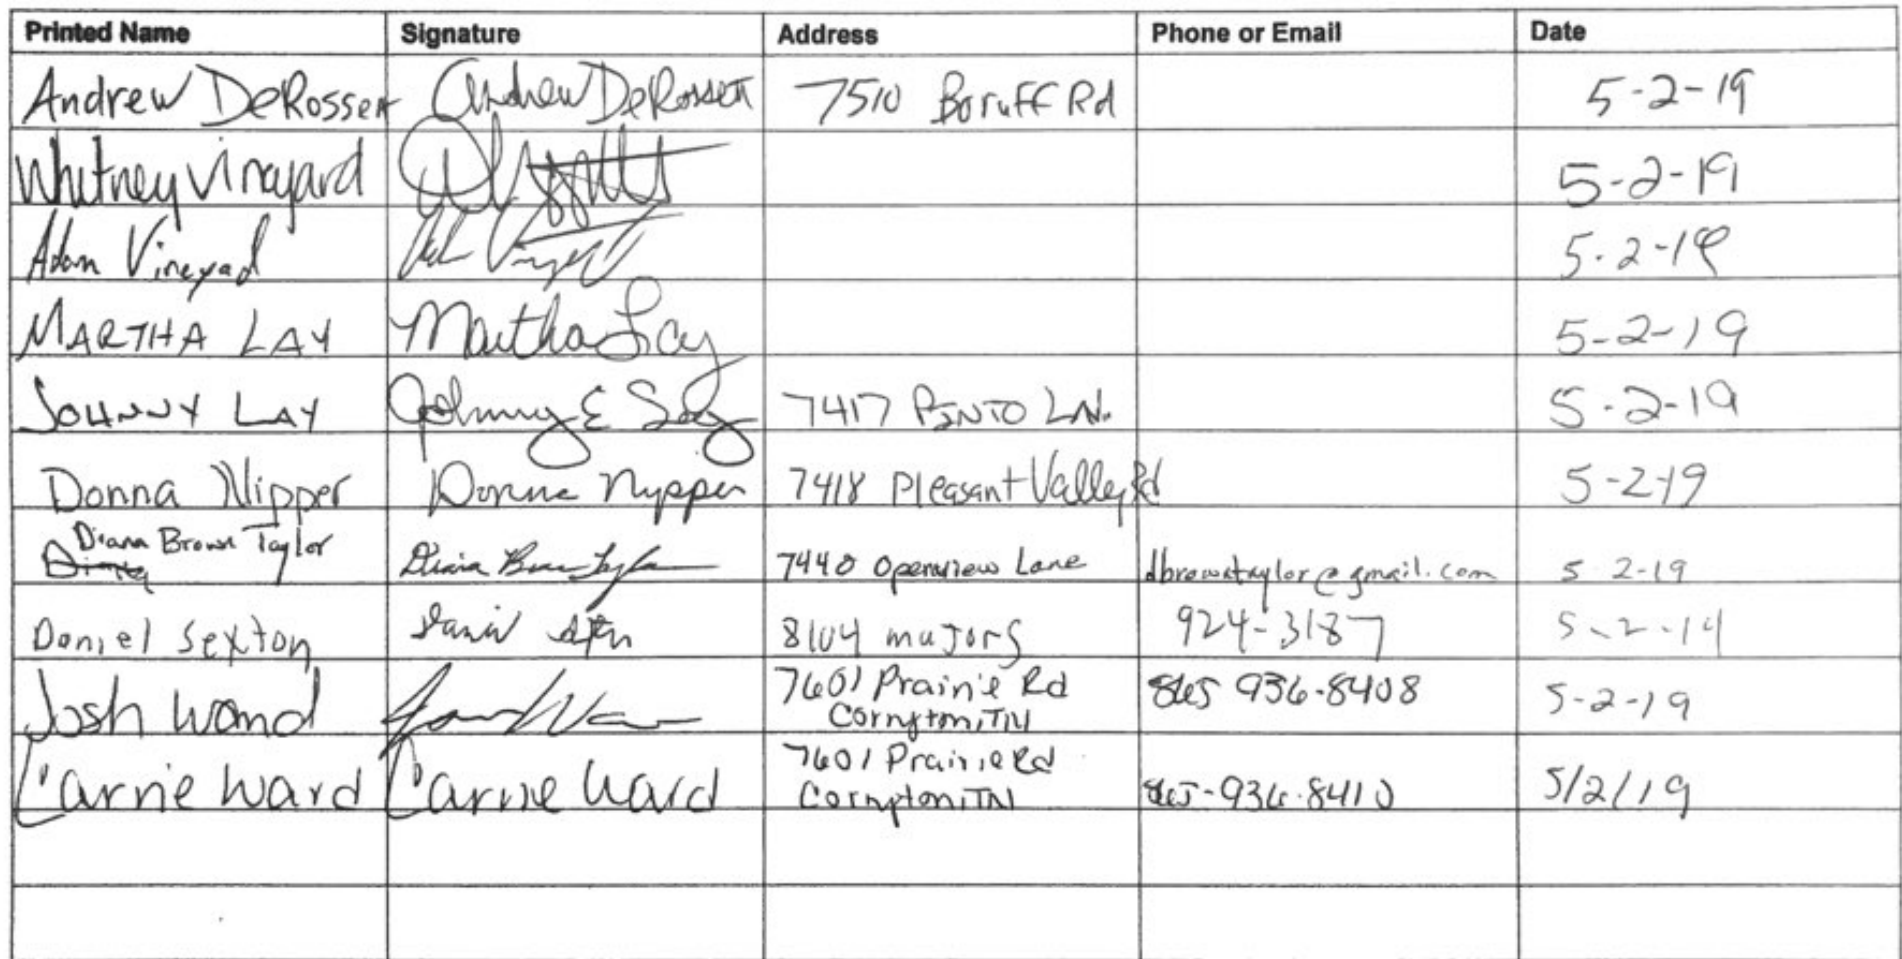 Printed Name Signature Address Phone or Email Date
Andrew DeRossett Andrew DeRossett 7510 Boruff Rd 5-2-19
Whitney Vineyard 5-2-19
Adam Vineyad 5-2-19
MARTHA LAY Martha Lay 5-2-19
JOHNNY LAY Johnny E Lay 7417 PINTO LN. 5-2-19
Donna Nipper Donna Nipper 7418 Pleasant Valley Rd 5-2-19
Diana Brown Taylor Diana Brown Taylor 7440 Openview Lane dbrowntaylor@gmail.com 5-2-19
Daniel Sexton 8104 majors 924-3187 5-2-19
Josh Ward 7601 Prairie Rd 865 936-8408 5-2-19
Corryton, TN
Carrie Ward Carrie Ward 7601 Prairie Rd 865-936-8410 5/2/19
Corryton, TN